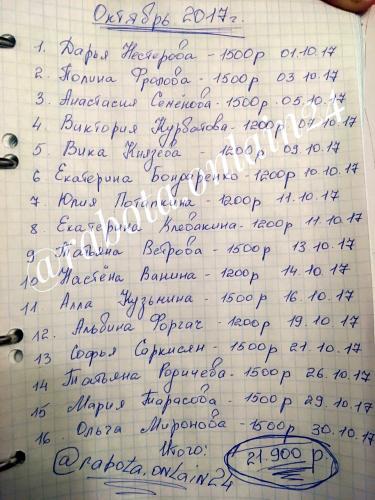 Октябрь 2017г.
1. Дарья Нестерова - 1500р 01.10.17
2. Полина Фролова - 1500р 03.10.17
3. Анастасия Семёнова - 1500р 05.10.17
4. Виктория Курбатова - 1200р 07.10.17
5. Вика Князева - 1200р 09.10.17
6 Екатерина Бондаренко - 1200р 10.10.17
7 Юлия Потапкина - 1200р 11.10.17
8. Екатерина Клебакина - 1200р 11.10.17
9 Татьяна Ветрова - 1500р 13.10.17
10 Настёна Ванина - 1200р 14.10.17
11 Алла Кузьмина - 1500р 16.10.17
12. Альбина Форгач - 1200р 19.10.17
13 Софья Саркисян - 1500р 21.10.17
14 Татьяна Родичева - 1500р 26.10.17
15 Мария Тарасова - 1500р 29.10.17
16. Ольга Миронова - 1500р 30.10.17
Итого: 21.900 р.
@rabota.onlain24
@rabota.onlain24